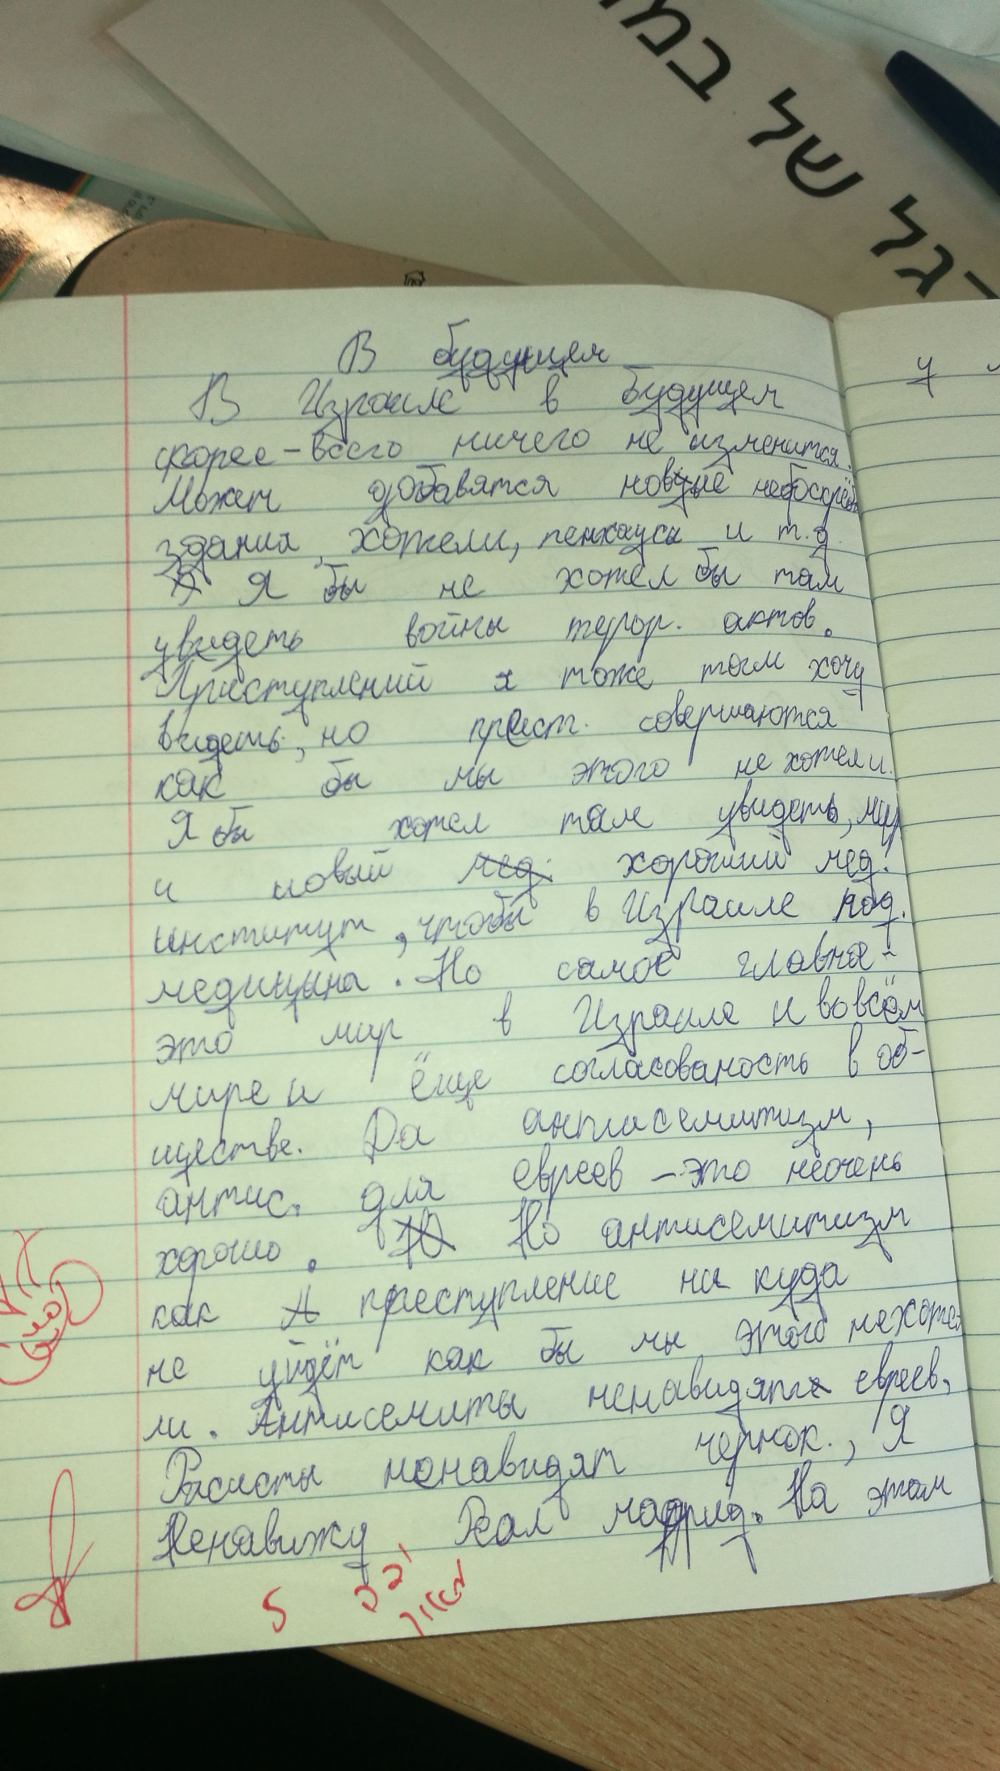 רגל של במ
В будущем
В Израиле в будущем
скорее-всего ничего не изменится.
Может добавятся новые небоскрёб
здания, хотели, пенхаусы и т.д.
Я бы не хотел бы там
увидеть войны терор. актов.
Приступлений я тоже там хочу
видеть, но прест. совершаются
как бы мы этого не хотели.
Я бы хотел там увидеть, мир
и новый мед. хороший мед.
институт, чтобы в Израиле
медицына. Но самое главна-
это мир в Израиле и во всём
мире и ёще согласованость в об-
ществе. Да антисемитизм,
антис. для евреев - это неочень
хорошо. Но Но антисемитизм
как А преступление ни куда
не уйдёт как бы мы этого нехоте
ли. Антисемиты ненавидят евреев,
Расисты ненавидят чернок., Я
Ненавижу Реал мадрид. На этом
5